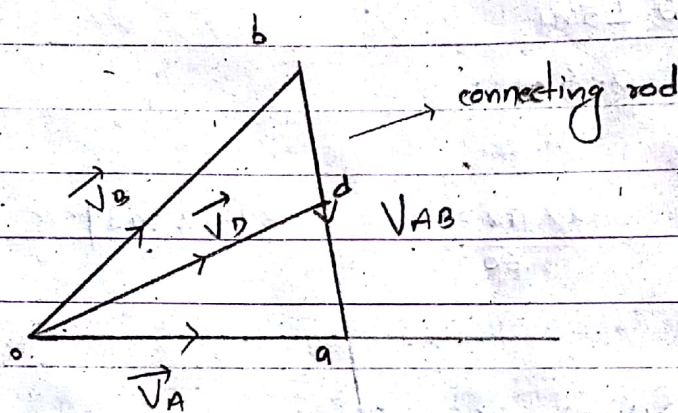 b
connecting rod
V⃗B
V⃗D
d
VAB
o
a
V⃗A